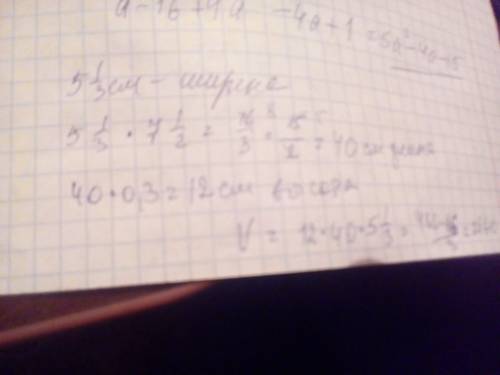 a - 16 + 4a - 4a + 1 = 5a² - 4a - 15
5 1/3 см - ширина
5 1/3 · 7 1/2 = 16/3 · 15/2 = 40 см длина
40 · 0,3 = 12 см высота
V = 12 · 40 · 5 1/3 =